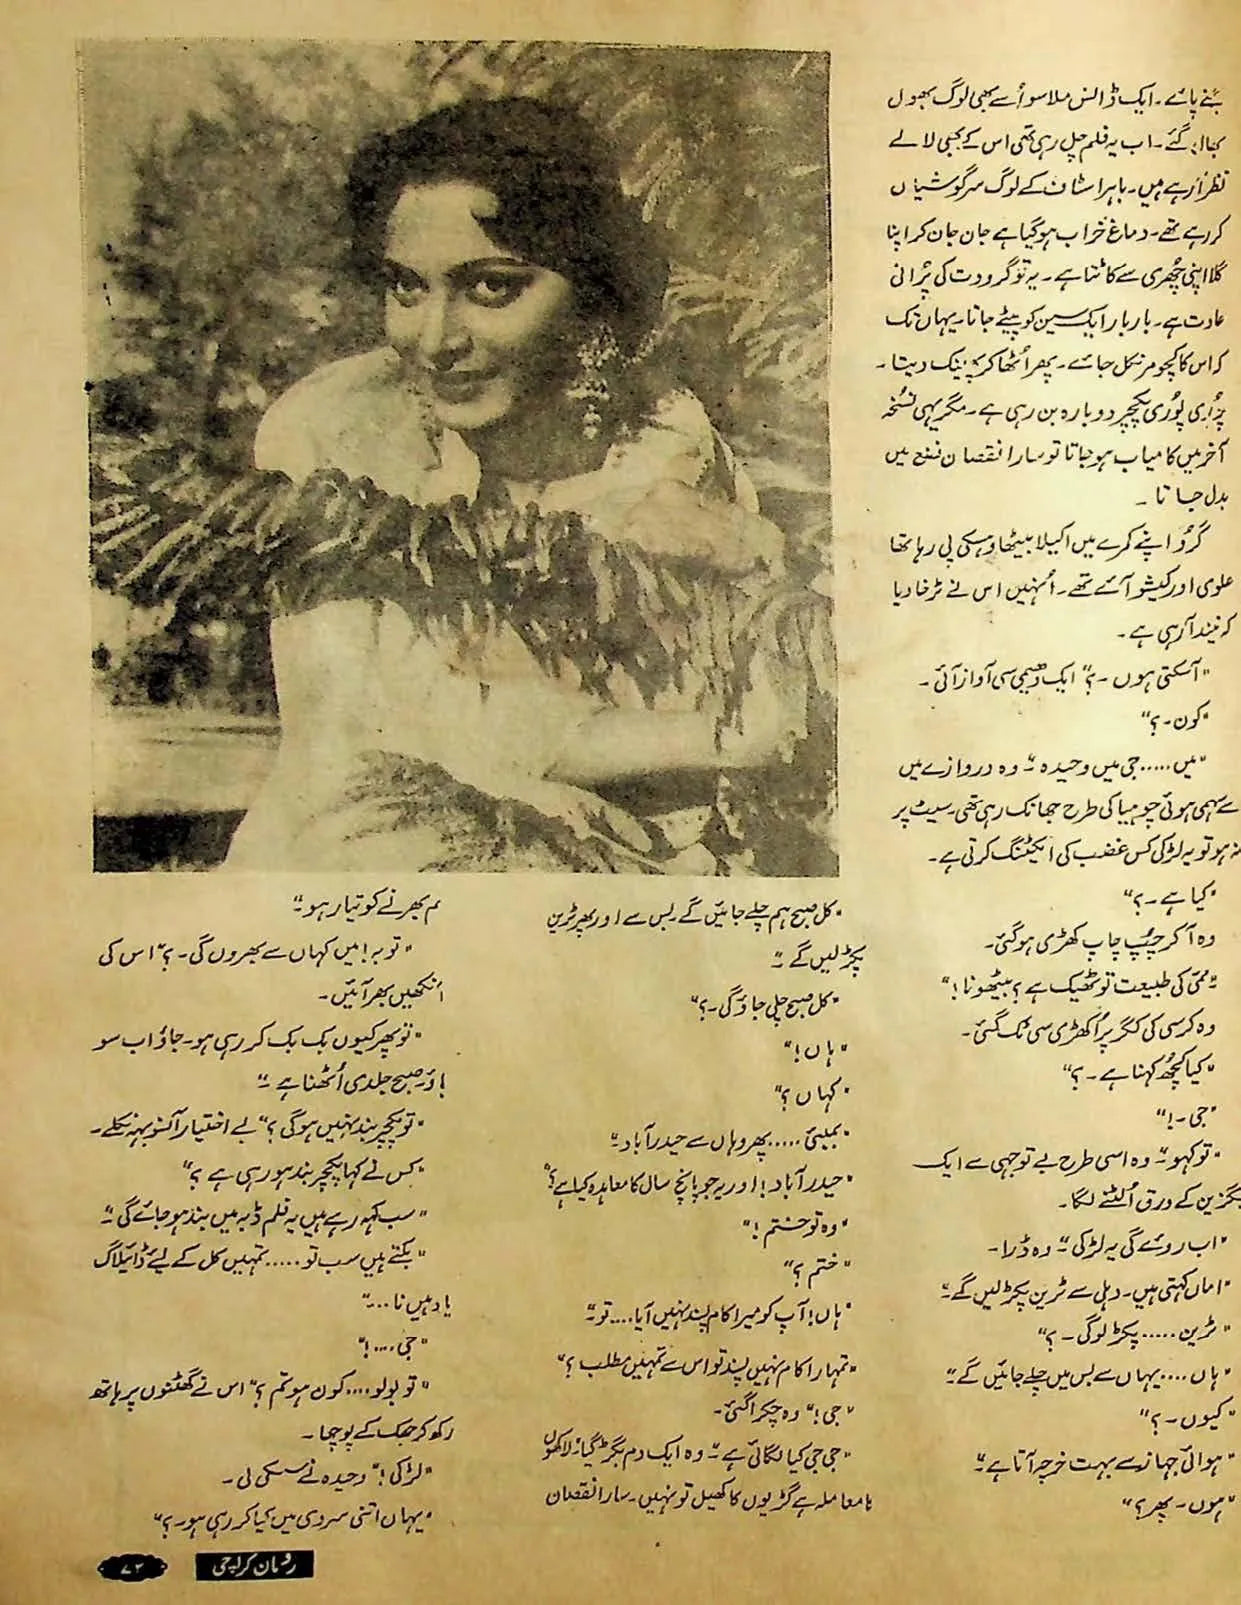 بننے پائے۔ ایک ڈانس ملا سو اُسے بھی لوگ بھول
بھال گئے۔ اب یہ فلم چل رہی تھی اس کے بھی لالے
نظر آرہے ہیں۔ باہر اسٹاف کے لوگ سرگوشیاں
کر رہے تھے۔ دماغ خراب ہو گیا ہے جان جان کر اپنا
گلا اپنی چھُری سے کاٹتا ہے۔ یہ تو گرودت کی پُرانی
عادت ہے۔ بار بار ایک سین کو پیٹے جاتا۔ یہاں تک
کہ اس کا کچومر نکل جائے۔ پھر اُٹھا کر پھینک دیتا۔
پوُری پکچر دوبارہ بن رہی ہے۔ مگر یہی نسُخہ
آخر میں کامیاب ہو جاتا تو سارا نقصان نفع میں
بدل جاتا۔
گرُو اپنے کمرے میں اکیلا بیٹھا وہسکی پی رہا تھا
علوی اور کیشو آئے تھے۔ اُنہیں اس نے ٹرخا دیا
کہ نیند آرہی ہے۔
"آسکتی ہوں۔؟" ایک دھیمی سی آواز آئی۔
"کون۔؟"
"میں..... جی میں وحیدہ" وہ دروازے میں
سے سہمی ہوئی چوہیا کی طرح جھانک رہی تھی۔ سیٹ پر
نہ ہو تو یہ لڑکی کس غضب کی ایکٹنگ کرتی ہے۔
"کیا ہے۔؟"
وہ آکر چُپ چاپ کھڑی ہوگئی۔
"ممی کی طبیعت تو ٹھیک ہے؟ بیٹھونا!"
وہ کرسی کی ککر پر اُکھڑی سی ٹک گئی۔
"کیا کچُھ کہنا ہے۔؟"
"جی۔!"
"تو کہو" وہ اسی طرح بے توجہی سے ایک
میگزین کے ورق اُلٹنے لگا۔
"اب روئے گی یہ لڑکی" وہ ڈرا۔
"اماں کہتی ہیں۔ دہلی سے ٹرین پکڑ لیں گے"
"ٹرین..... پکڑ لوگی۔؟"
"ہاں.... یہاں سے بس میں چلے جائیں گے"
"کیوں۔؟"
"ہوائی جہاز سے بہت خرچ آتا ہے"
"ہوں۔ پھر؟"
"کل صبح ہم چلے جائیں گے۔ بس سے اور پھر ٹرین
پکڑ لیں گے"
"کل صبح چلی جاؤ گی۔؟"
"ہاں!"
"کہاں؟"
"بمبئی..... پھر وہاں سے حیدر آباد"
"حیدر آباد! اور یہ جو پانچ سال کا معاہدہ کیا ہے؟"
"وہ تو ختم!"
"ختم؟"
"ہاں! آپ کو میرا کام پسند نہیں آیا.... تو"
"تمہارا کام نہیں پسند تو اس سے تمہیں مطلب؟"
"جی!" وہ چکرا گئی۔
"جی جی کیا لگائی ہے" وہ ایک دم بگڑ گیا۔ لاکھوں
کا معاملہ ہے گڑیوں کا کھیل تو نہیں۔ سارا نقصان
تم بھرنے کو تیار ہو"
"توبہ! میں کہاں سے بھروں گی۔؟" اس کی
آنکھیں بھر آئیں۔
"تو پھر کیوں بک بک کر رہی ہو۔ جاؤ اب سو
جاؤ۔ صبح جلدی اُٹھنا ہے"
"تو پکچر بند نہیں ہوگی؟" بے اختیار آنسو بہہ نکلے۔
"کس نے کہا پکچر بند ہو رہی ہے؟"
"سب کہہ رہے ہیں یہ فلم ڈبہ میں بند ہو جائے گی"
"بکتے ہیں سب تو..... تمہیں کل کے لیئے ڈائیلاگ
یاد ہیں نا..."
"جی....!"
"تو بولو.... کون ہو تم؟" اس نے گھٹنوں پر ہاتھ
رکھ کر جھک کے پوچھا۔
"لڑکی!" وحیدہ نے سسکی لی۔
"یہاں اتنی سردی میں کیا کر رہی ہو۔؟"
رومان کراچی
۷۲